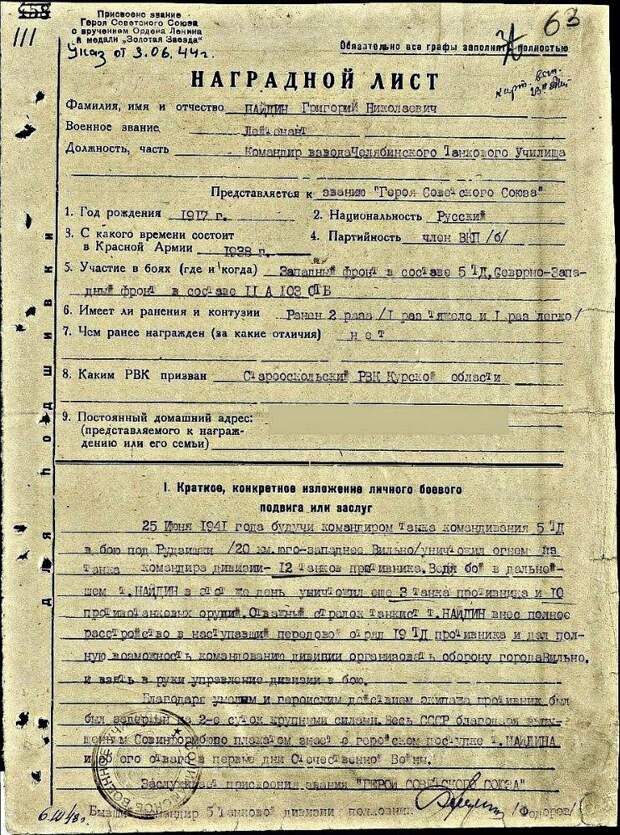 Присвоено звание
Героя Советского Союза
с вручением Ордена Ленина
и медали „Золотая Звезда"
Указ от 3.06.44г.
111
63
Обязательно все графы заполнять полностью
НАГРАДНОЙ ЛИСТ
Фамилия, имя и отчество НАЙДИН Григорий Николаевич
Военное звание Лейтенант
Должность, часть Командир взвода Челябинского Танкового Училища
Представляется к званию "Героя Советского Союза"
1. Год рождения 1917 г. 2. Национальность Русский
3. С какого времени состоит 4. Партийность член ВКП /б/
в Красной Армии 1938 г.
5. Участие в боях (где и когда) Западный фронт в составе 5 ТД, Севррно-Запа-
дный фронт в составе II А 103 ОТБ
6. Имеет ли ранения и контузии Ранен 2 раза /I раз тяжело и I раз легко/
7. Чем ранее награжден (за какие отличия) нет
8. Каким РВК призван Старооскольский РВК Курской области
9. Постоянный домашний адрес:
(представляемого к награж-
дению или его семьи)
для подшивки
I. Краткое, конкретное изложение личного боевого
подвига или заслуг
25 Июня 1941 года будучи командиром танка командивания 5 ТД
в бою под Рудзишки /20 км.юго-западнее Вильно/уничтожил огнем из
танка командира дивизии- 12 танков противника. Ведя бой в дальней-
шем т. НАЙДИН в этот же день уничтожил еще 3 танка противника и 10
противотанковых орудий. Отважный стрелок танкист т. НАЙДИН внес полное
расстройство в наступавший передовой отряд 19 ТД противника и дал пол-
ную возможность командованию дивизии организовать оборону города Вильно,
и взять в руки управление дивизии в бою.
Благодаря умелым и геройским действием экипажа противник был
был задержан на 2-е суток крупными силами. Весь СССР благодаря выпу-
щенным Совинформбюро плакатом знает о геройском поступке т. НАЙДИНА
и его отваге в первые дни Отечественной Войны.
Заслуживает присвоения звания "ГЕРОЙ СОВЕТСКОГО СОЮЗА"
Бывший командир 5 Танковой дивизии полковник /Федоров/